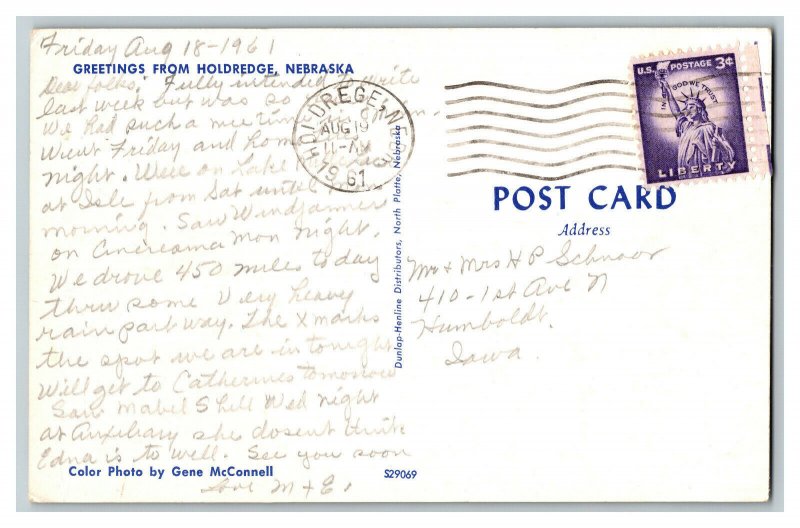 Friday Aug 18-1961
GREETINGS FROM HOLDREDGE, NEBRASKA
Dear folks: Fully intended to write
last week but was so
We had such a nice time in
Went Friday and home
night. Were on Lake
at Isle from Sat until
morning. Saw Windjammer
on Cinerama Mon night.
We drove 450 miles today
thru some very heavy
rain part way. The X marks
the spot we are in tonight
Will get to Catherines tomorrow
Saw Mabel Shell Wed night
at Auxiliary she dosent think
Edna is to well. See you soon
Love M + E.
Color Photo by Gene McConnell
S29069
Dunlap-Henline Distributors, North Platte, Nebraska
HOLDREGE, NEBR.
AUG 19
11-AM
1961
U.S. POSTAGE 3¢
IN GOD WE TRUST
LIBERTY
POST CARD
Address
Mr + Mrs H P Schnoor
410-1st Ave N
Humboldt.
Iowa.